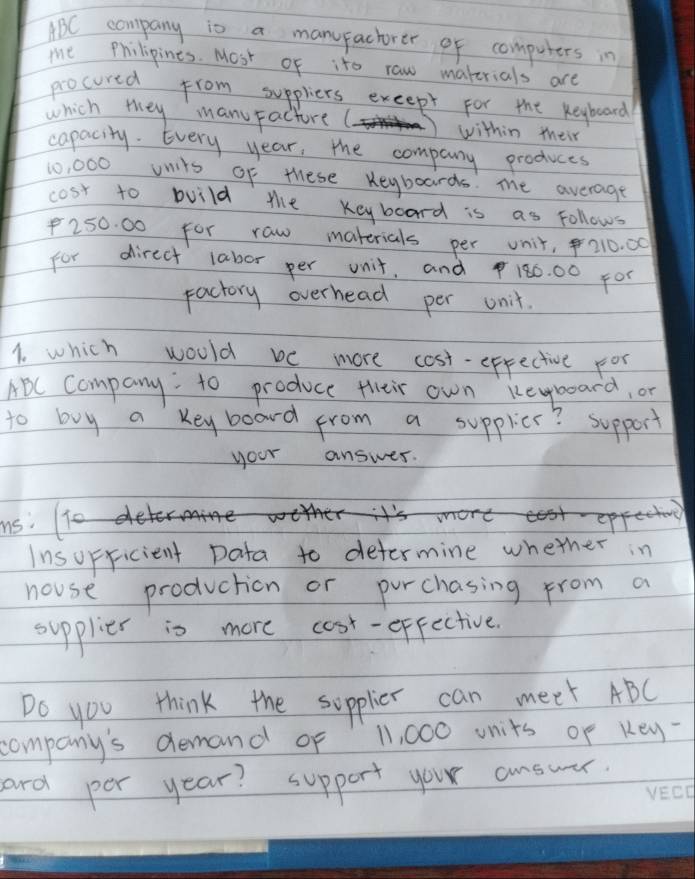 ABC company is a manufactorer of computers in
the Philipines. Most of its raw materials are
procured from suppliers except for the keyboard
which they manufacture () within their
capacity. Every year, the company produces
10,000 units of these keyboards. The average
cost to build the keyboard is as follows
₱250.00 for raw materials per unit, ₱210.00
for direct labor per unit, and ₱180.00 for
factory overhead per unit.
1. which would be more cost-effective for
ABC Company: to produce their own keyboard, or
to buy a keyboard from a supplier? Support
your answer.
ns: (To determine wether it's more cost-effective)
Insufficient Data to determine whether in
house production or purchasing from a
supplier is more cost-effective.
Do you think the supplier can meet ABC
company's demand of 11,000 units of key-
oard per year? support your answer.
VECO